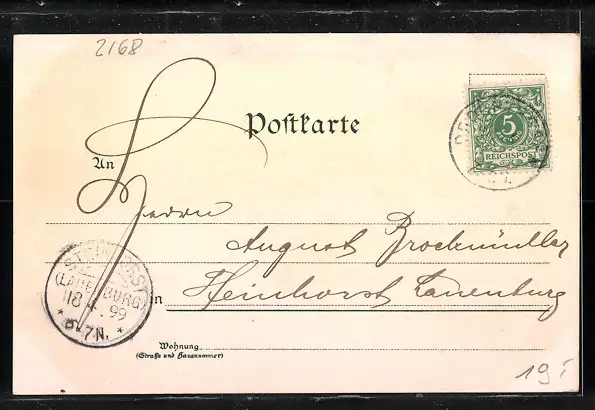 2168
Postkarte
An
5
REICHSPOST
Herrn
August Brockmüller
in Steinhorst Lauenburg
(LAUENBURG)
18 . 99
* 5-7N. *
Wohnung
(Straße und Hausnummer)
19,-